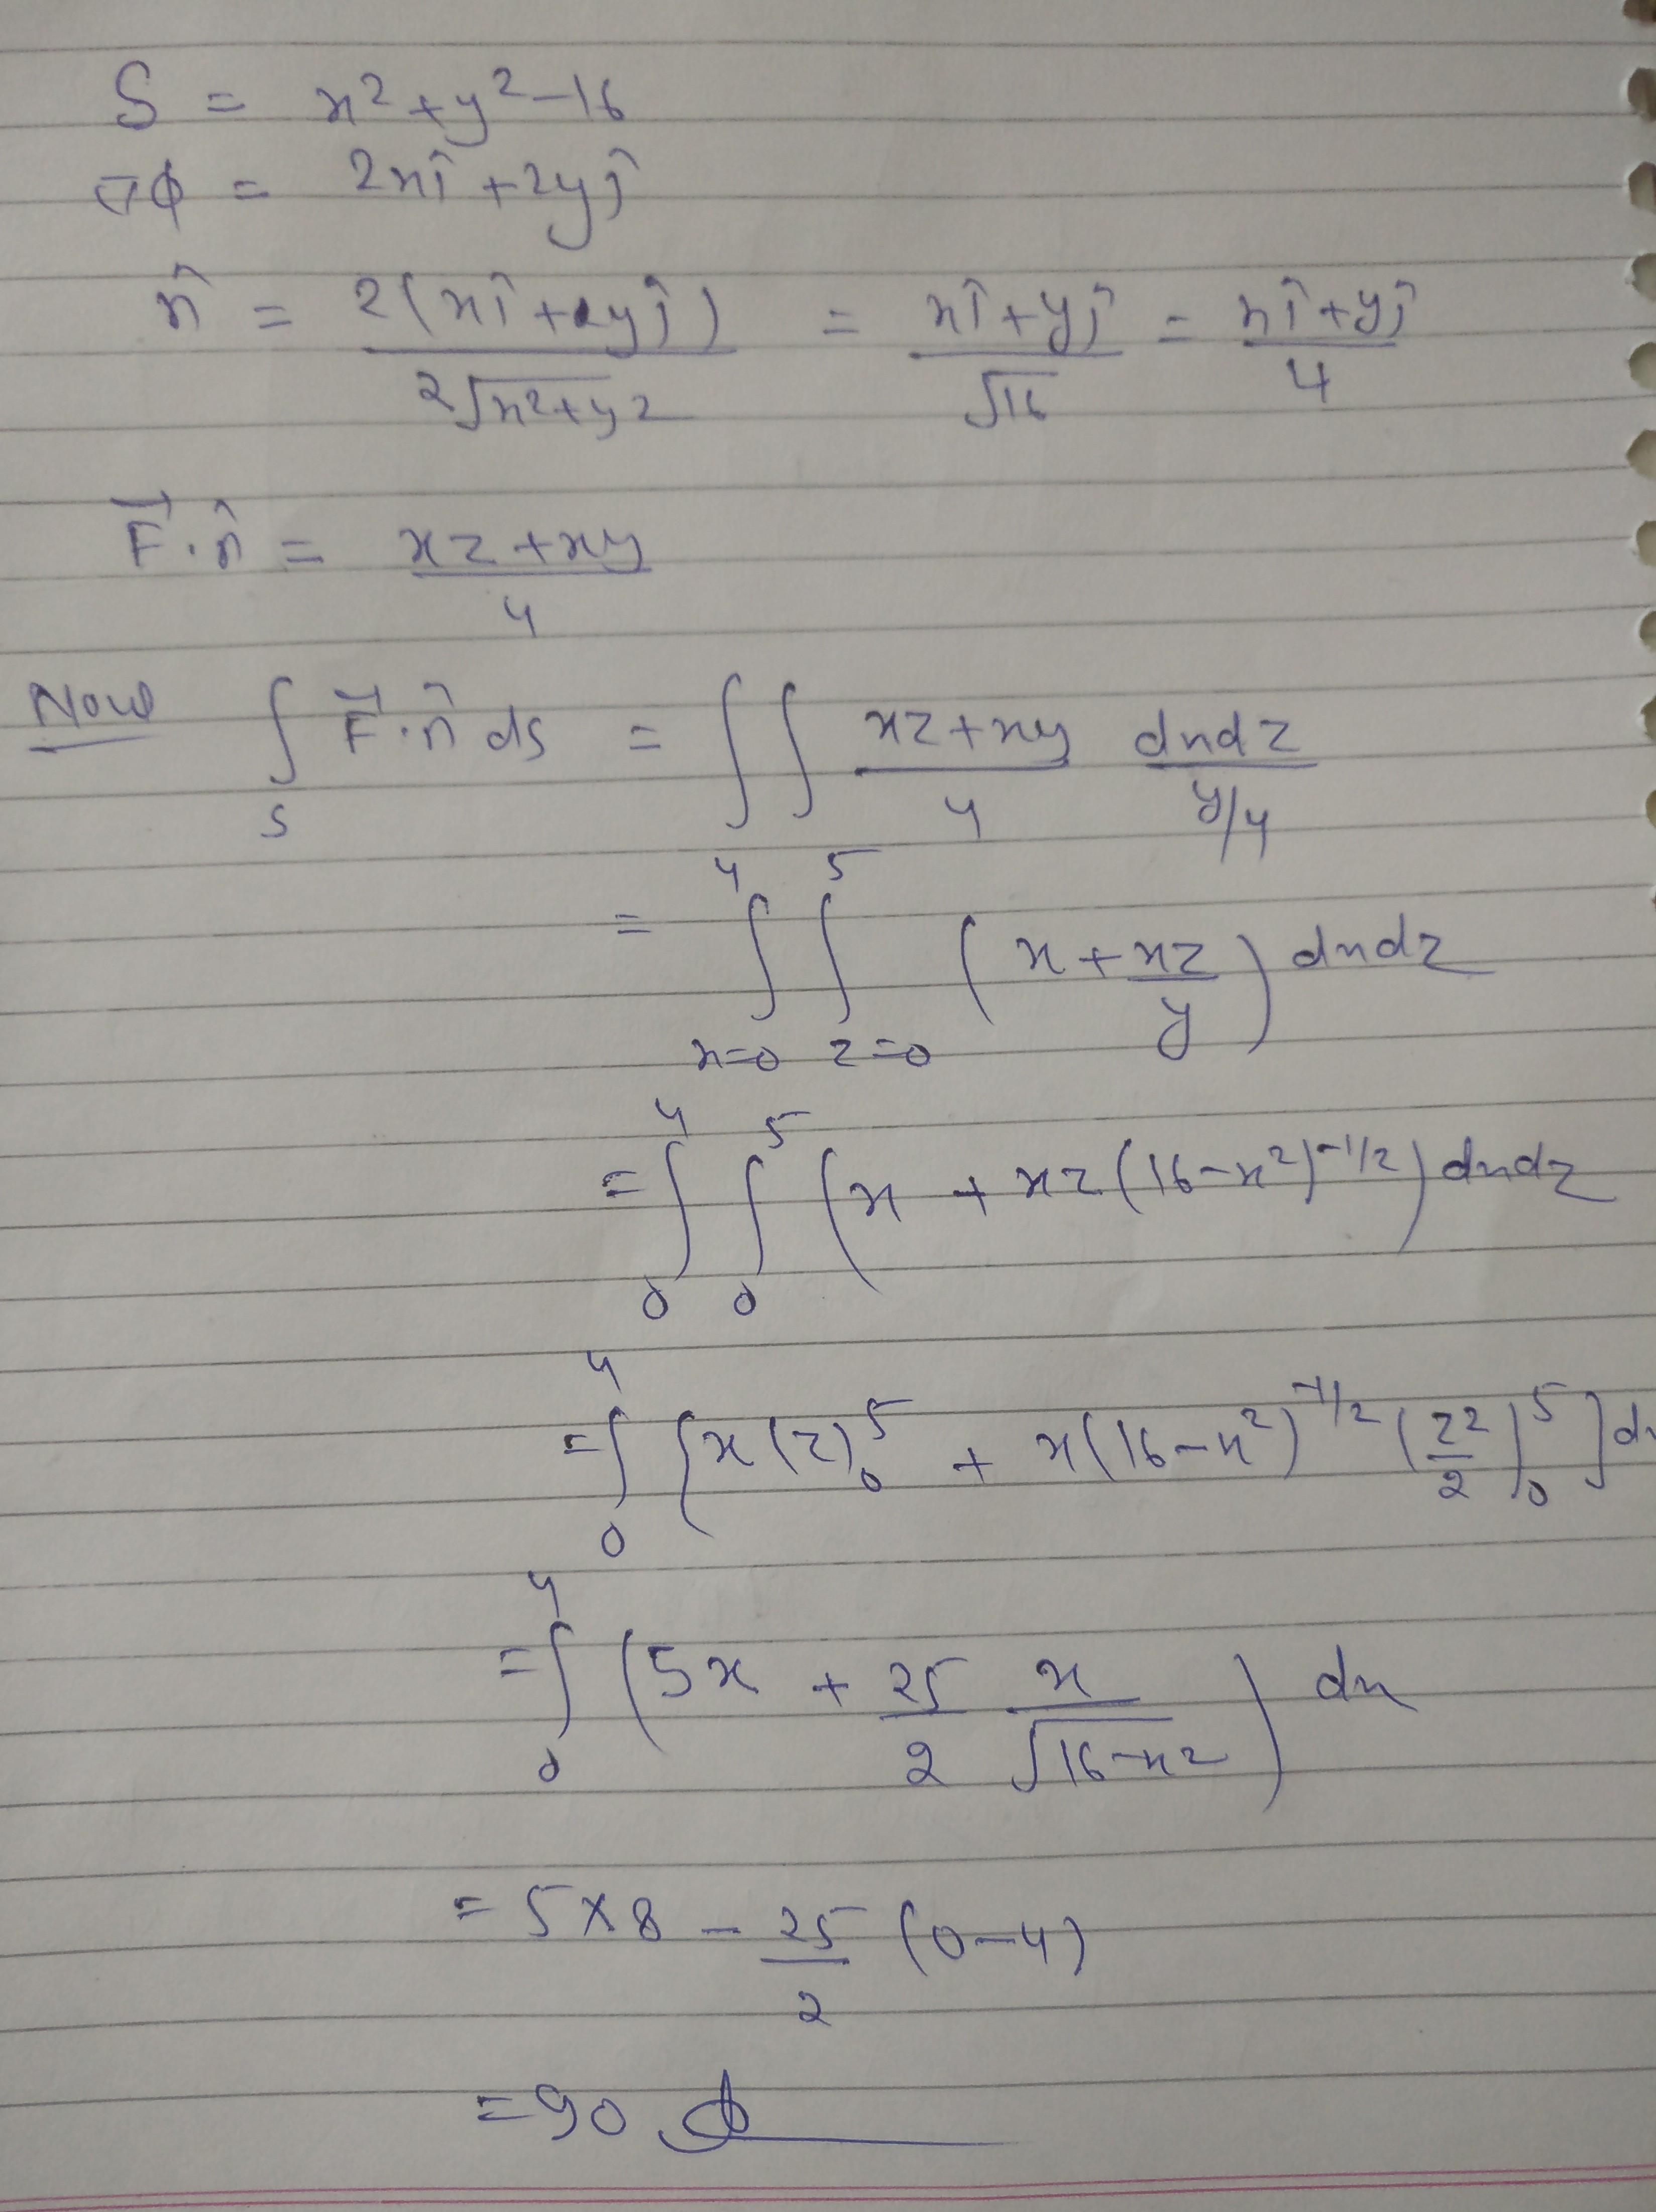 S = x²+y²-16
∇ϕ = 2xî+2yĵ
n̂ = 2(xî+yĵ)/2√x²+y² = xî+yĵ/√16 = xî+yĵ/4
F⃗.n̂ = xz+xy/4
Now ∫_S F⃗.n̂ ds = ∫∫ xz+xy/4 dxdz/y/4
= ∫_{x=0}^{4} ∫_{z=0}^{5} (x+xz/y) dxdz
= ∫_0^4 ∫_0^5 (x + xz(16-x²)^{-1/2}) dxdz
= ∫_0^4 [x(z)_0^5 + x(16-x²)^{-1/2} (z²/2)_0^5]
= ∫_0^4 (5x + 25/2 x/√16-x²) dx
= 5×8 - 25/2 (0-4)
= 90